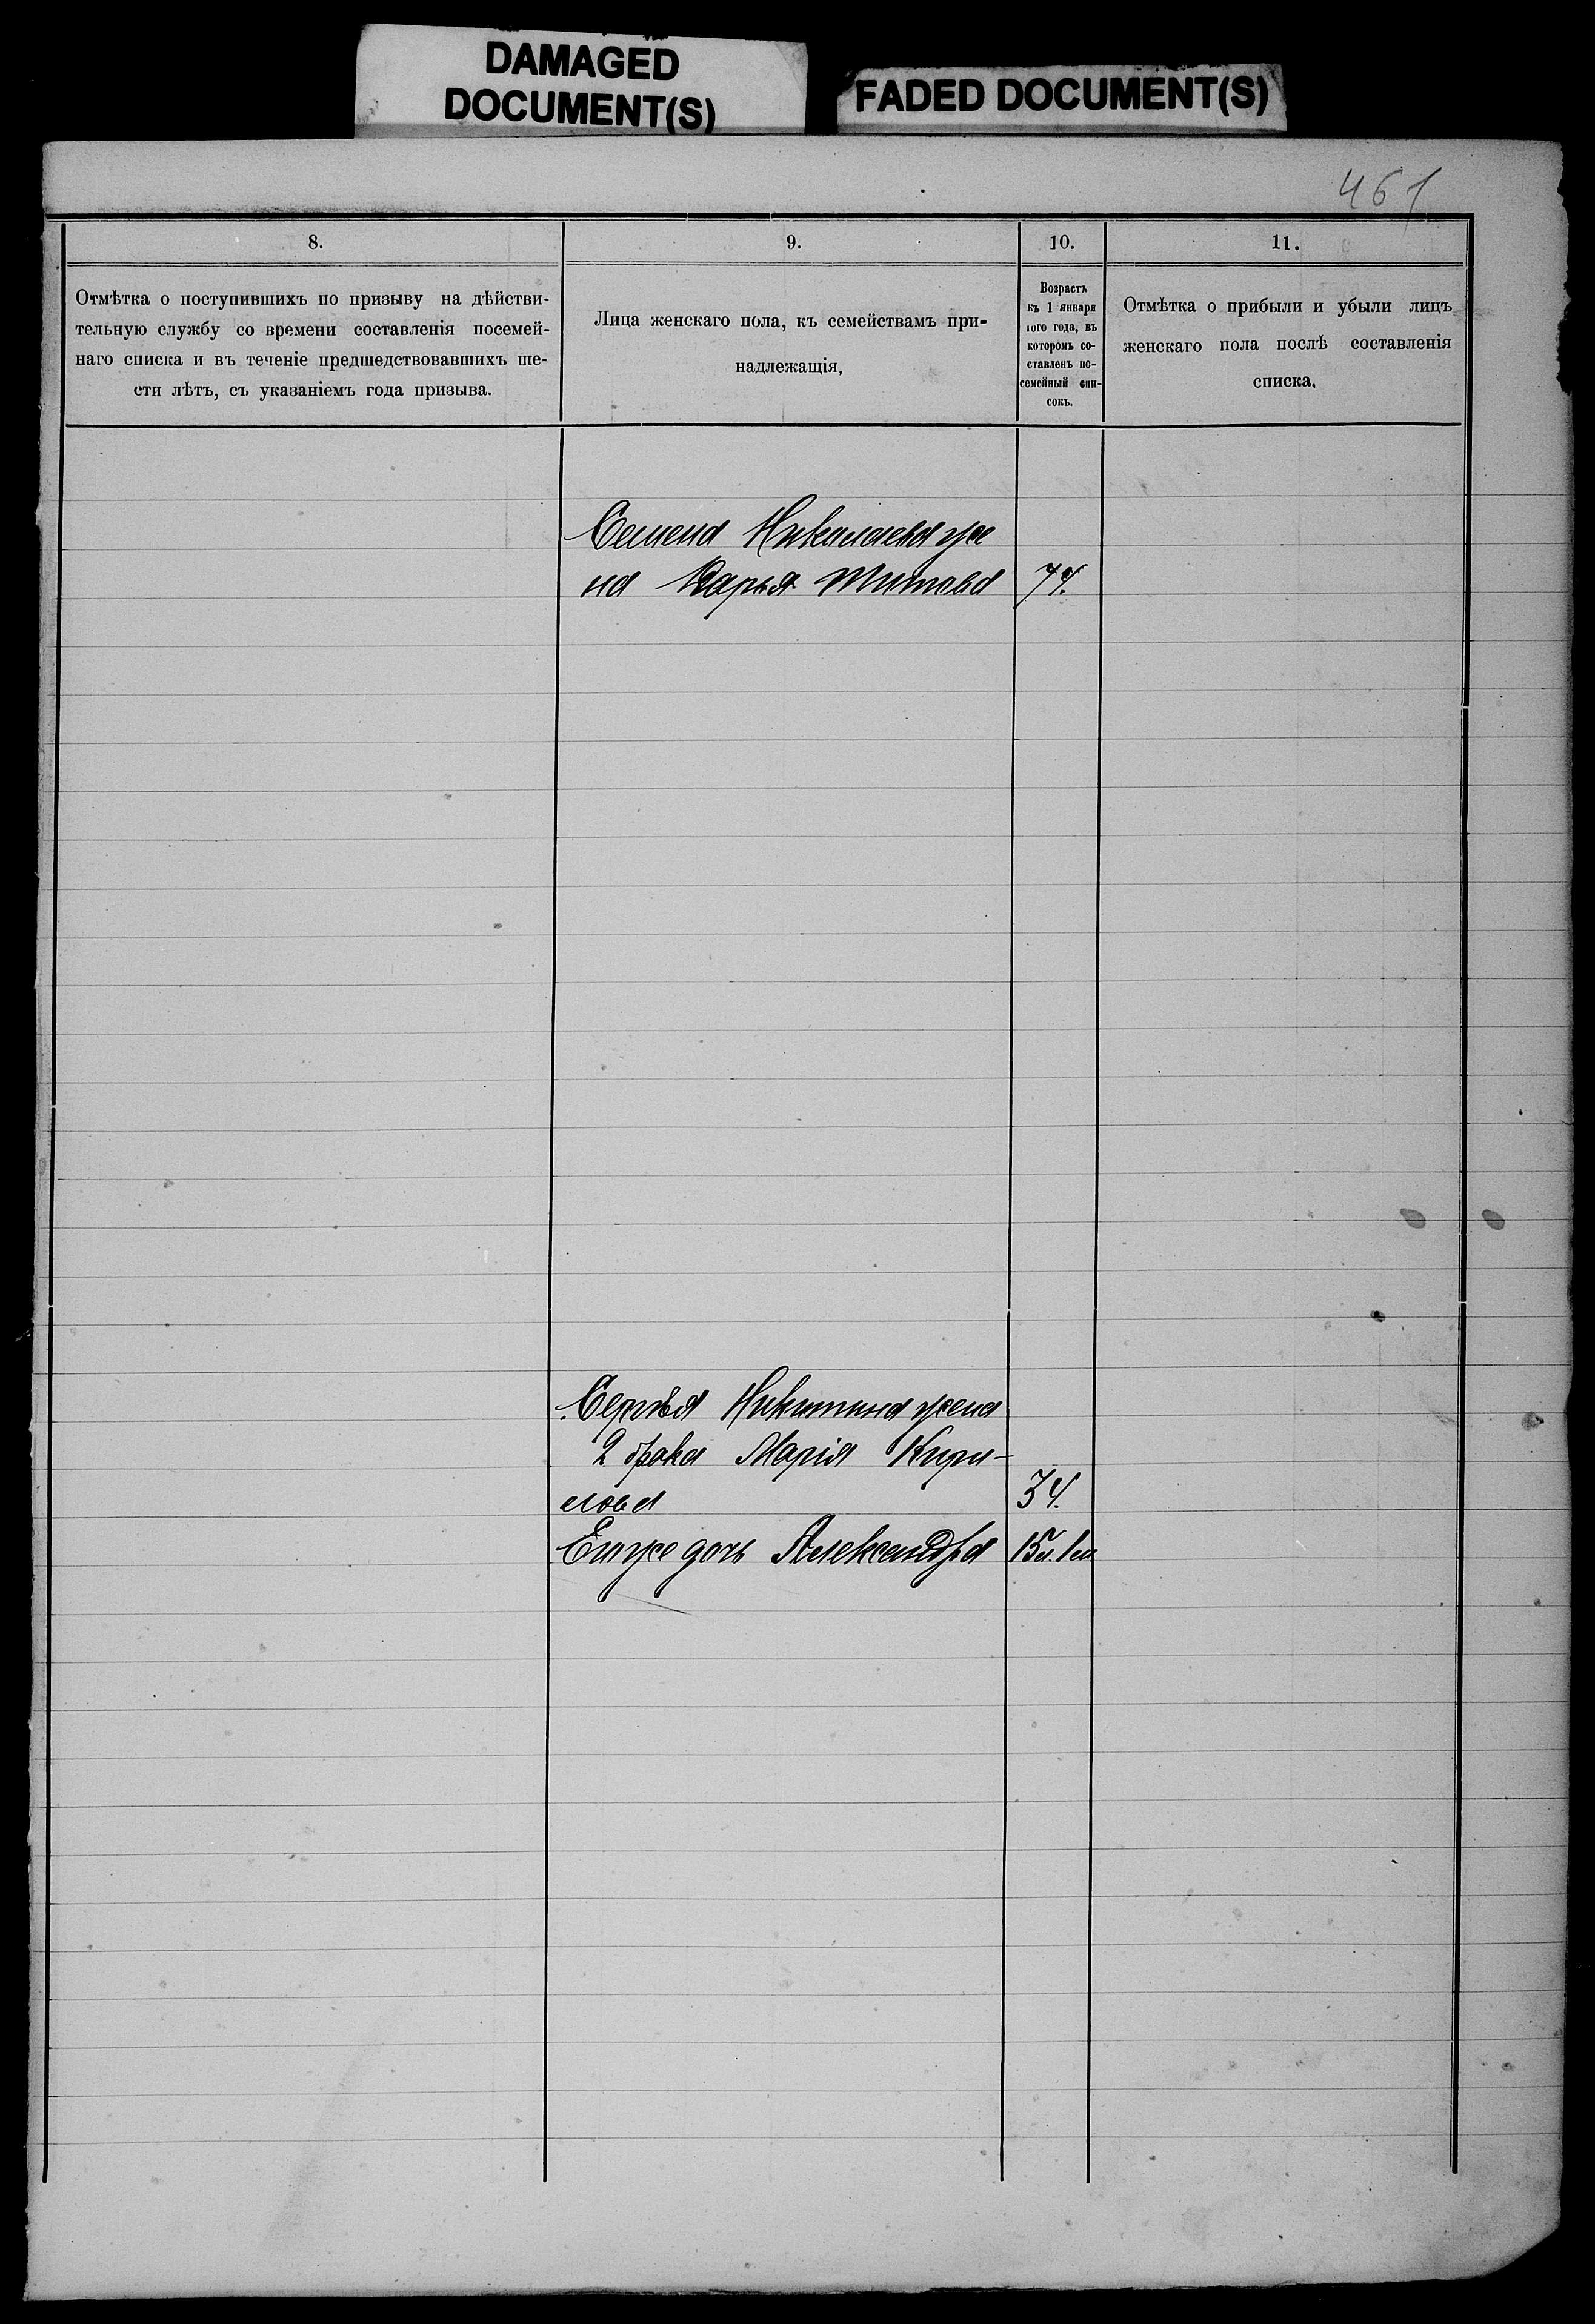 DAMAGED
DOCUMENT(S)
FADED DOCUMENT(S)
461
8.
9.
10.
11.
Отмѣтка о поступившихъ по призыву на дѣйстви-
тельную службу со времени составленія посемей-
наго списка и въ теченіе предшедствовавшихъ ше-
сти лѣтъ, съ указаніемъ года призыва.
Лица женскаго пола, къ семействамъ при-
надлежащія,
Возрастъ
къ 1 января
того года, въ
которомъ со-
ставленъ по-
семейный спи-
сокъ.
Отмѣтка о прибыли и убыли лицъ
женскаго пола послѣ составленія
списка.
Семена Николаева же
на Дарья Титова 74.
Сергѣя Никитина жена
2 брака Марія Кири-
лова 34.
Его же дочь Александра 15л. 1м